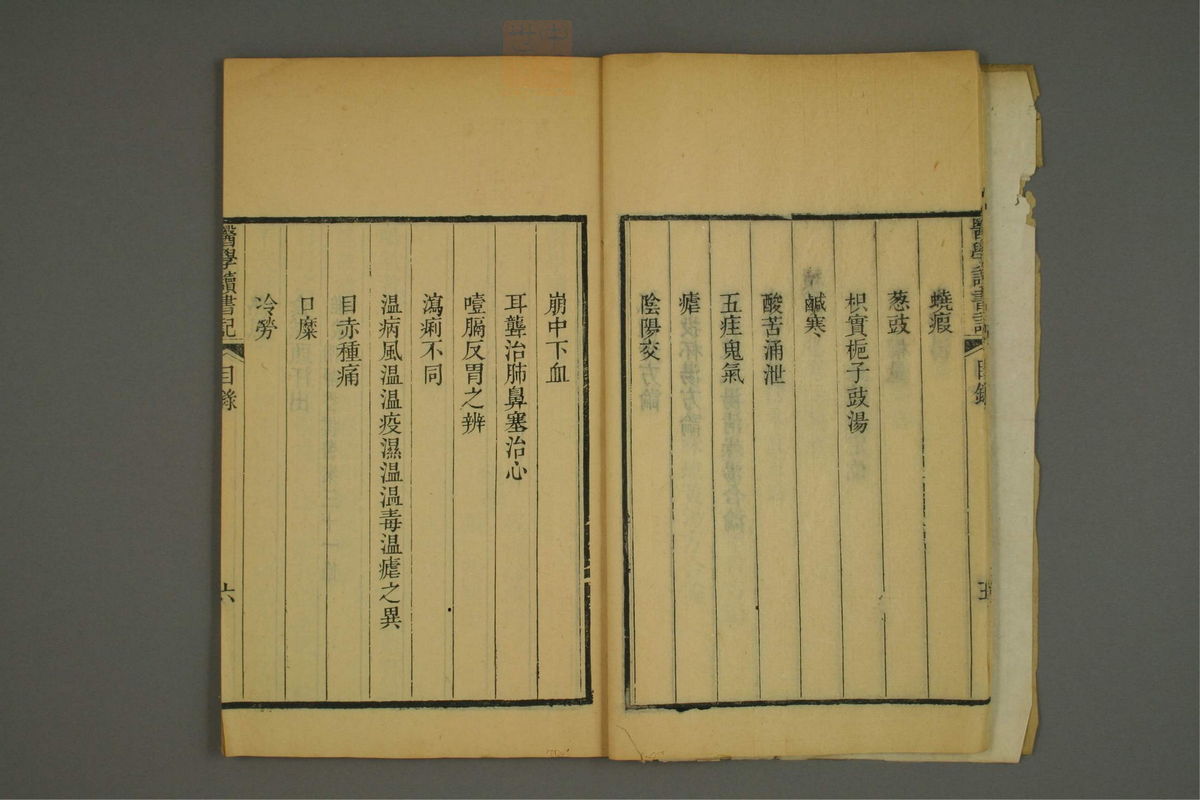 醫學讀書記
目錄
五
蟯瘕
葱豉
枳實梔子豉湯
鹹寒
酸苦涌泄
五疰鬼氣
瘧
陰陽交
崩中下血
耳聾治肺鼻塞治心
噎膈反胃之辨
瀉痢不同
温病風温温疫濕温温毒温瘧之異
目赤種痛
口糜
冷勞
醫學讀書記
目錄
六